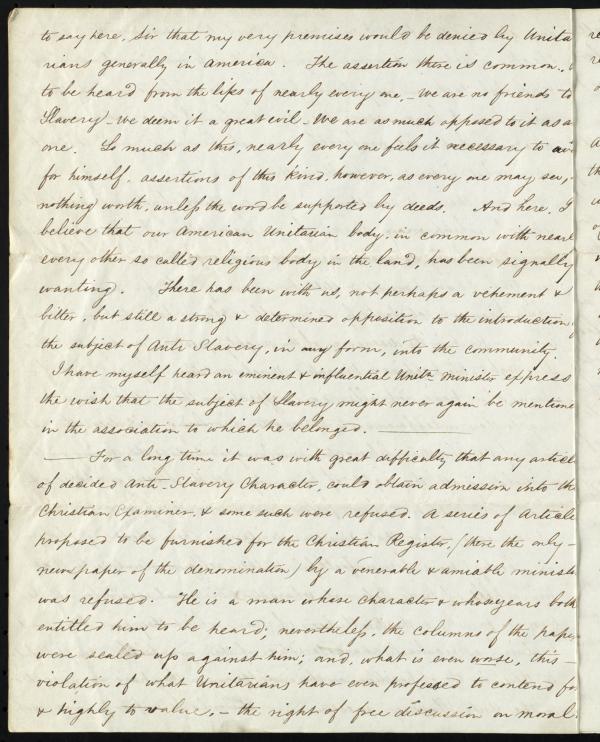 to say here, Sir that my very premises would be denied by Unita
rians generally in America. The assertion there is common,
to be heard from the lips of nearly every one, – we are no friends to
Slavery – we deem it a great evil – We are as much opposed to it as a
one. So much as this, nearly every one feels it necessary to av
for himself. assertions of this kind, however, as every one may see,
nothing worth, unless the word be supported by deeds. And here, I
believe that our American Unitarian body, in common with nearl
every other so called religious body in the land, has been signally
wanting. There has been with us, not perhaps a vehement &
bitter, but still a strong & determined opposition to the introduction,
the subject of Anti Slavery, in any form, into the community.
I have myself heard an eminent & influential Unitn minister express
the wish that the subject of Slavery might never again be mentione
in the association to which he belonged. ———
—— For a long time it was with great difficulty that any articl
of decided Anti-Slavery Character, could obtain admission into th
Christian Examiner, & some such were refused. A series of Article
proposed to be furnished for the Christian Register, (there the only –
newspaper of the denomination) by a venerable & amiable ministe
was refused. He is a man whose character & whose years both
entitled him to be heard; nevertheless, the columns of the paper
were sealed up against him; and, what is even worse, this –
violation of what Unitarians have even professed to contend for
& highly to value, – the right of free discussion on moral